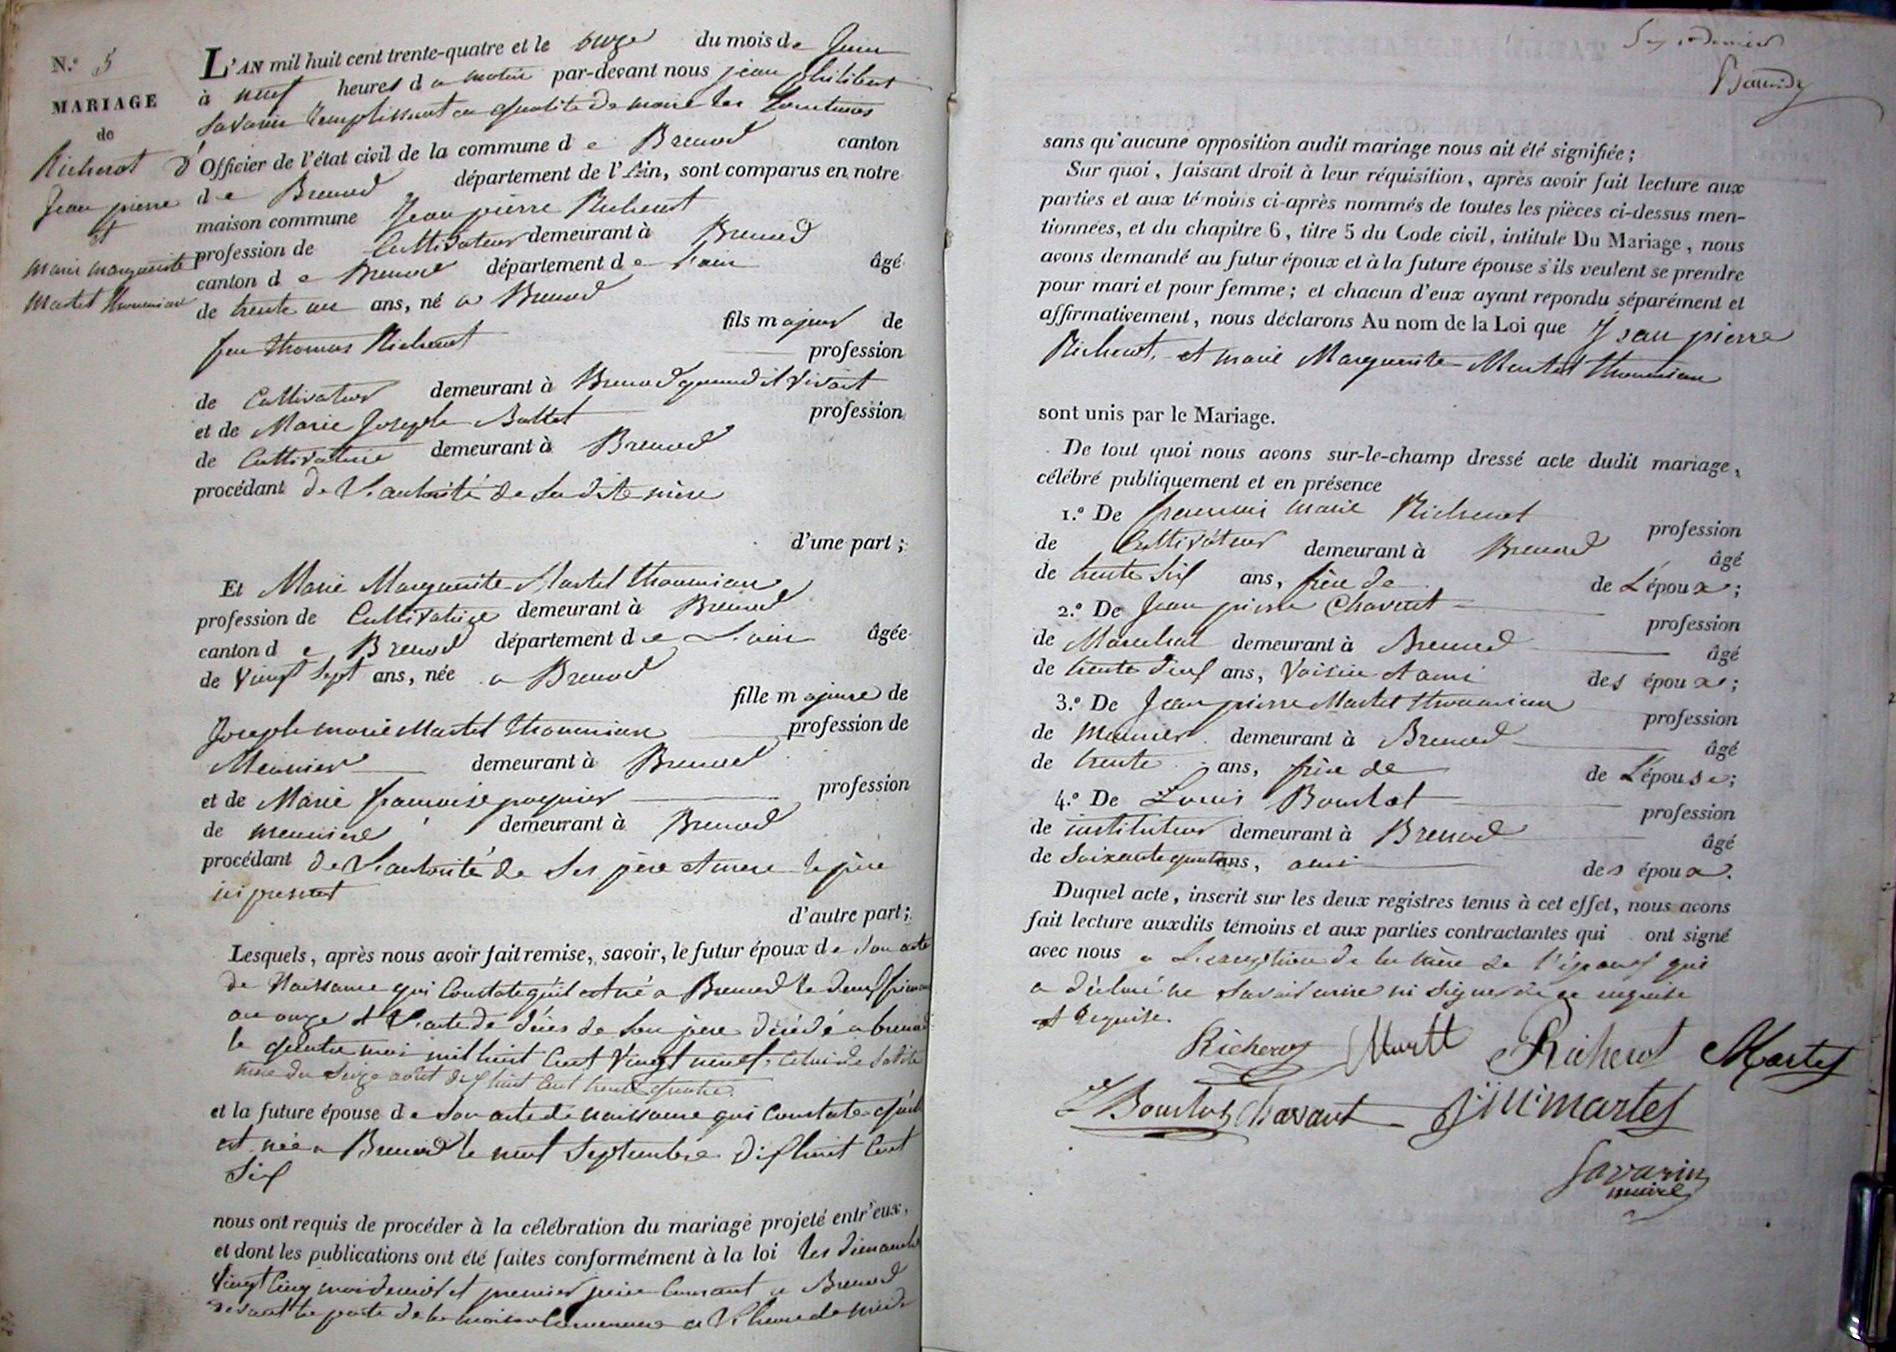 N.º 5
MARIAGE
de
Richerot
Jean pierre
et
marie marguerite
Martel thoumian
L'AN mil huit cent trente-quatre et le onze du mois de Juin
à neuf heures du matin par-devant nous jean philibert
Savarin remplissant en qualité de maire les fonctions
d'Officier de l'état civil de la commune de Brenod canton
de Brenod département de l'Ain, sont comparus en notre
maison commune Jean pierre Richerot
profession de Cultivateur demeurant à Brenod
canton de Brenod département de l'ain âgé
de trente un ans, né a Brenod
fils majeur de
feu thomas Richerot profession
de Cultivateur demeurant à Brenod quand il vivait
et de Marie Joseph Ballet profession
de Cultivatrice demeurant à Brenod
procédant de l'autorité de sa dite mère
d'une part ;
Et Marie Marguerite Martel thoumian
profession de Cultivatrice demeurant à Brenod
canton de Brenod département de L'ain âgée
de vingt sept ans, née a Brenod
fille majeure de
Joseph marie Martel thoumian profession de
Meunier demeurant à Brenod
et de Marie françoise poynier profession
de meuniere demeurant à Brenod
procédant de l'autorité de ses père et mere le père
ici present
d'autre part ;
Lesquels, après nous avoir fait remise, savoir, le futur époux de son acte
de Naissance qui Constate qu'il est né a Brenod le deux frimaire
an onze et l'acte de décès de son père décédé a brenod
le quatre mai mil huit Cent vingt neuf,
et la future épouse de son acte de naissance qui constate qu'elle
est née a Brenod le neuf Septembre dix huit Cent
Six
nous ont requis de procéder à la célébration du mariage projeté entr'eux,
et dont les publications ont été faites conformément à la loi les dimanche
vingt Cinq mai dernier et premier juin Courant a Brenod
devant la porte de la maison Commune a l'heure de midi
sans qu'aucune opposition audit mariage nous ait été signifiée ;
Sur quoi, faisant droit à leur réquisition, après avoir fait lecture aux
parties et aux témoins ci-après nommés de toutes les pièces ci-dessus men-
tionnées, et du chapitre 6, titre 5 du Code civil, intitulé Du Mariage, nous
avons demandé au futur époux et à la future épouse s'ils veulent se prendre
pour mari et pour femme ; et chacun d'eux ayant repondu séparément et
affirmativement, nous déclarons Au nom de la Loi que Jean pierre
Richerot, et marie Marguerite Martel thoumian
sont unis par le Mariage.
De tout quoi nous avons sur-le-champ dressé acte dudit mariage,
célébré publiquement et en présence
1.º De françois marie Richerot profession
de Cultivateur demeurant à Brenod âgé
de trente six ans, frère de de L'époux ;
2.º De Jean pierre Chavent profession
de Marechal demeurant à Brenod âgé
de trente deux ans, voisin et ami des époux ;
3.º De Jean pierre Martel thoumian profession
de Meunier demeurant à Brenod âgé
de trente ans, frère de de L'épouse ;
4.º De Louis Bourlot profession
de instituteur demeurant à Brenod âgé
de Soixante quatre ans, ami des époux.
Duquel acte, inscrit sur les deux registres tenus à cet effet, nous avons
fait lecture auxdits témoins et aux parties contractantes qui ont signé
avec nous a L'exception de la mère de l'époux qui
a déclaré ne savoir écrire ni signer de ce enquise
et Requise.
Richerot Martel Richerot Martel
Bourlot Chavant J: M: martel
Savarin
maire